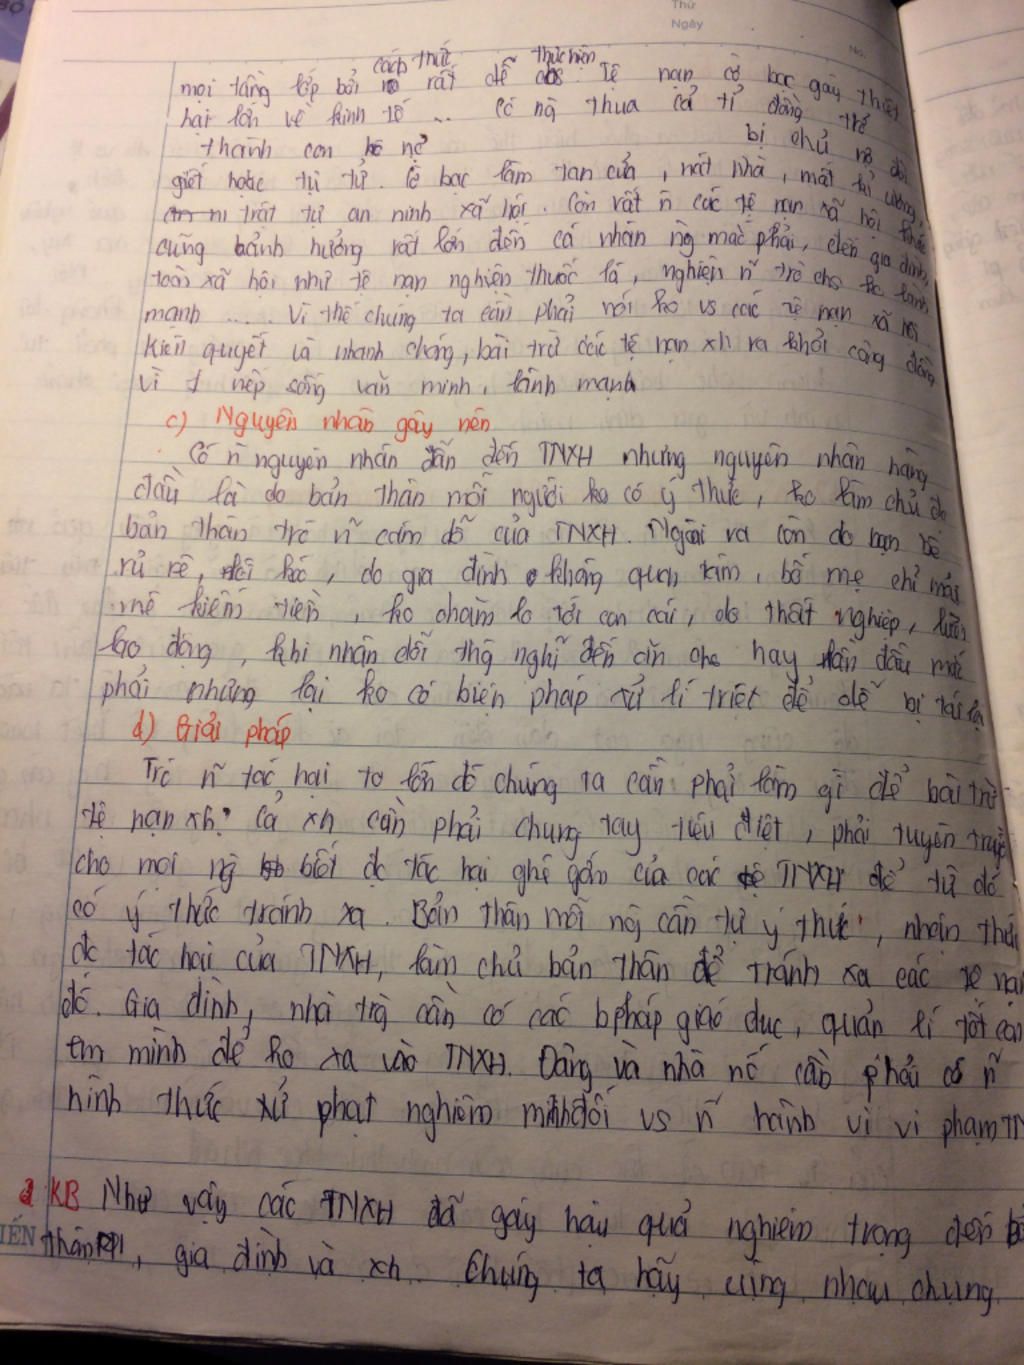 Thứ
Ngày
No.
cách thức thực hiện
mọi tầng lớp bởi nó rất dễ. Tệ nạn cờ bạc gây thiệt
hại lớn về kinh tế ... Có ng thua cả tỉ đồng trở
thành con nợ bị chủ nợ đòi
giết hoặc tự tử. Cờ bạc làm tan cửa, nát nhà, mất kỉ cương,
trật tự an ninh xã hội. Còn rất n các tệ nạn xã hội khác
cũng ảnh hưởng rất lớn đến cá nhân ng mắc phải, đến gia đình,
toàn xã hội như tệ nạn nghiện thuốc lá, nghiện n~ trò chơi ko lành
mạnh ...... Vì thế chúng ta cần phải nói ko vs các tệ nạn xã hội
kiên quyết và nhanh chóng, bài trừ các tệ nạn xh ra khỏi cộng đồng
vì 1 nếp sống văn minh, lành mạnh
c) Nguyên nhân gây nên
Có n nguyên nhân dẫn đến TNXH nhưng nguyên nhân hàng
đầu là do bản thân mỗi người ko có ý thức, ko làm chủ đc
bản thân trc n~ cám dỗ của TNXH. Ngoài ra còn do bạn bè
rủ rê, lôi kéo, do gia đình không quan tâm, bố mẹ chỉ mải
mê kiếm tiền, ko chăm lo tới con cái, do thất nghiệp, lười
lao động, khi nhàn dỗi thg nghĩ đến ăn chơi hay lần đầu mắc
phải nhưng lại ko có biện pháp xử lí triệt để dễ bị tái lại
d) Giải pháp
Trc n~ tác hại to lớn đó chúng ta cần phải làm gì để bài trừ
tệ nạn xh? Cả xh cần phải chung tay tiêu diệt, phải tuyên truyền
cho mọi ng biết đc tác hại ghê gớm của các TNXH để từ đó
có ý thức tránh xa. Bản thân mỗi ng cần tự ý thức, nhận thức
đc tác hại của TNXH, làm chủ bản thân để tránh xa các tệ nạn
đó. Gia đình, nhà trg cần có các bpháp giáo dục, quản lí tốt con
em mình để ko xa vào TNXH. Đảng và nhà nc cần phải có n~
hình thức xử phạt nghiêm minh đối vs n~ hành vi vi phạm TN
KB Như vậy các TNXH đã gây hậu quả nghiêm trọng đến
IẾN thân, gia đình và xh. Chúng ta hãy cùng nhau chung